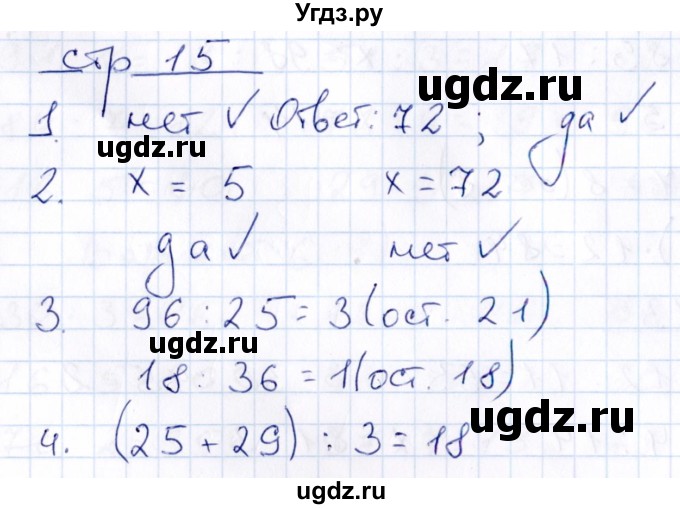 Угдз.ру
стр 15
1. нет ✓ Ответ: 72 ; да ✓
ugdz.ru
ugdz.ru
2. x = 5 x = 72
да ✓ нет ✓
ugdz.ru
3. 96 : 25 = 3 (ост. 21)
ugdz.ru
18 : 36 = 1 (ост. 18)
4. (25 + 29) : 3 = 18
ugdz.ru
ugdz.ru